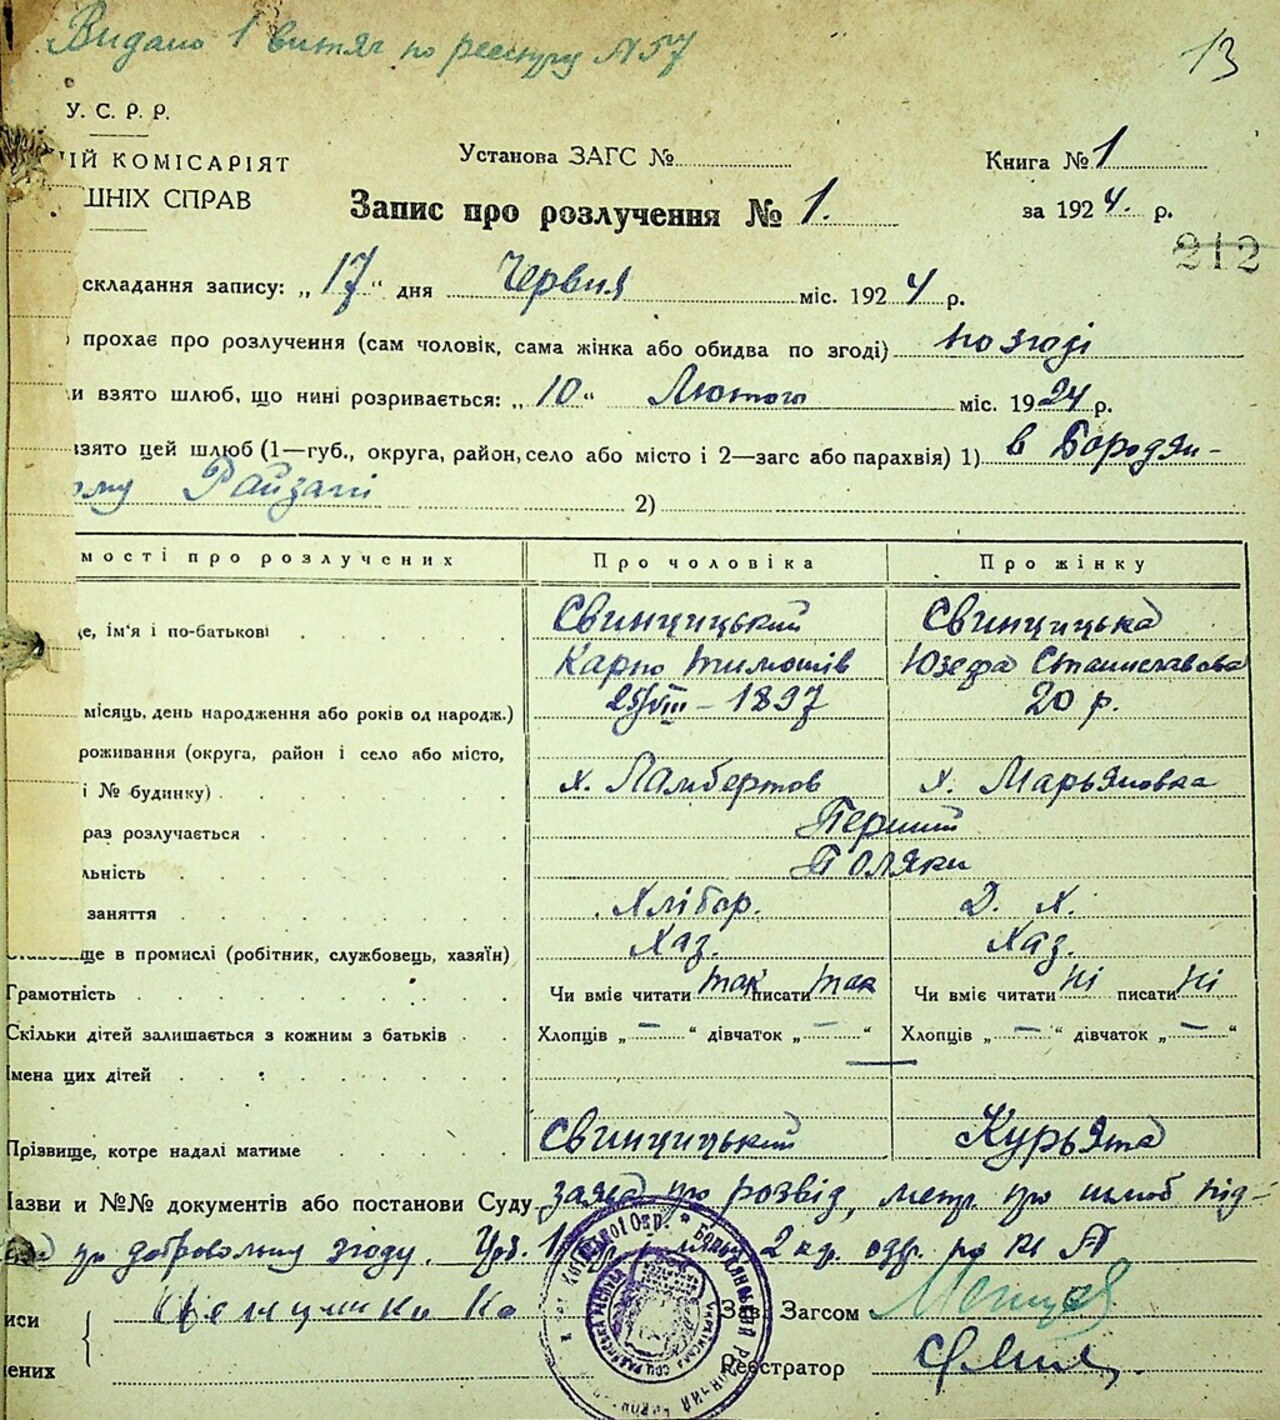 Видано 1 витяг по реестру N 57
13
У. С. Р. Р.
ИЙ КОМІСАРІЯТ
ШНІХ СПРАВ
Установа ЗАГС №
Книга № 1
Запис про розлучення № 1.
за 1924. р.
212
складання запису: „17“ дня Червня міс. 1924 р.
прохає про розлучення (сам чоловік, сама жінка або обидва по згоді) по згоді
и взято шлюб, що нині розривається: „10“ Лютого міс. 1924 р.
взято цей шлюб (1—губ., округа, район, село або місто і 2—загс або парахвія) 1) в Бородян-
ому Райзагсі 2)
мості про розлучених Про чоловіка Про жінку
е, ім'я і по-батькові Свинцицький Свинцицька
Карпо Тимошів Юзефа Станиславова
місяць, день народження або років од народж.) 25/VIII – 1897 20 р.
роживання (округа, район і село або місто,
і № будинку) х. Ламбертов х. Марьяновка
раз розлучається Перший
льність Поляки
заняття Хлібор. Д. Х.
ще в промислі (робітник, службовець, хазяїн) Хаз. Хаз.
Грамотність Чи вміє читати так писати так Чи вміє читати ні писати ні
Скільки дітей залишається з кожним з батьків Хлопців „—“ дівчаток „—“ Хлопців „—“ дівчаток „—“
Імена цих дітей —
Прізвище, котре надалі матиме Свинцицький Курьята
Назви и №№ документів або постанови Суду заява про розвід, метр. про шлюб під-
про добровольну згоду.
иси Зав. Загсом
ених Реєстратор